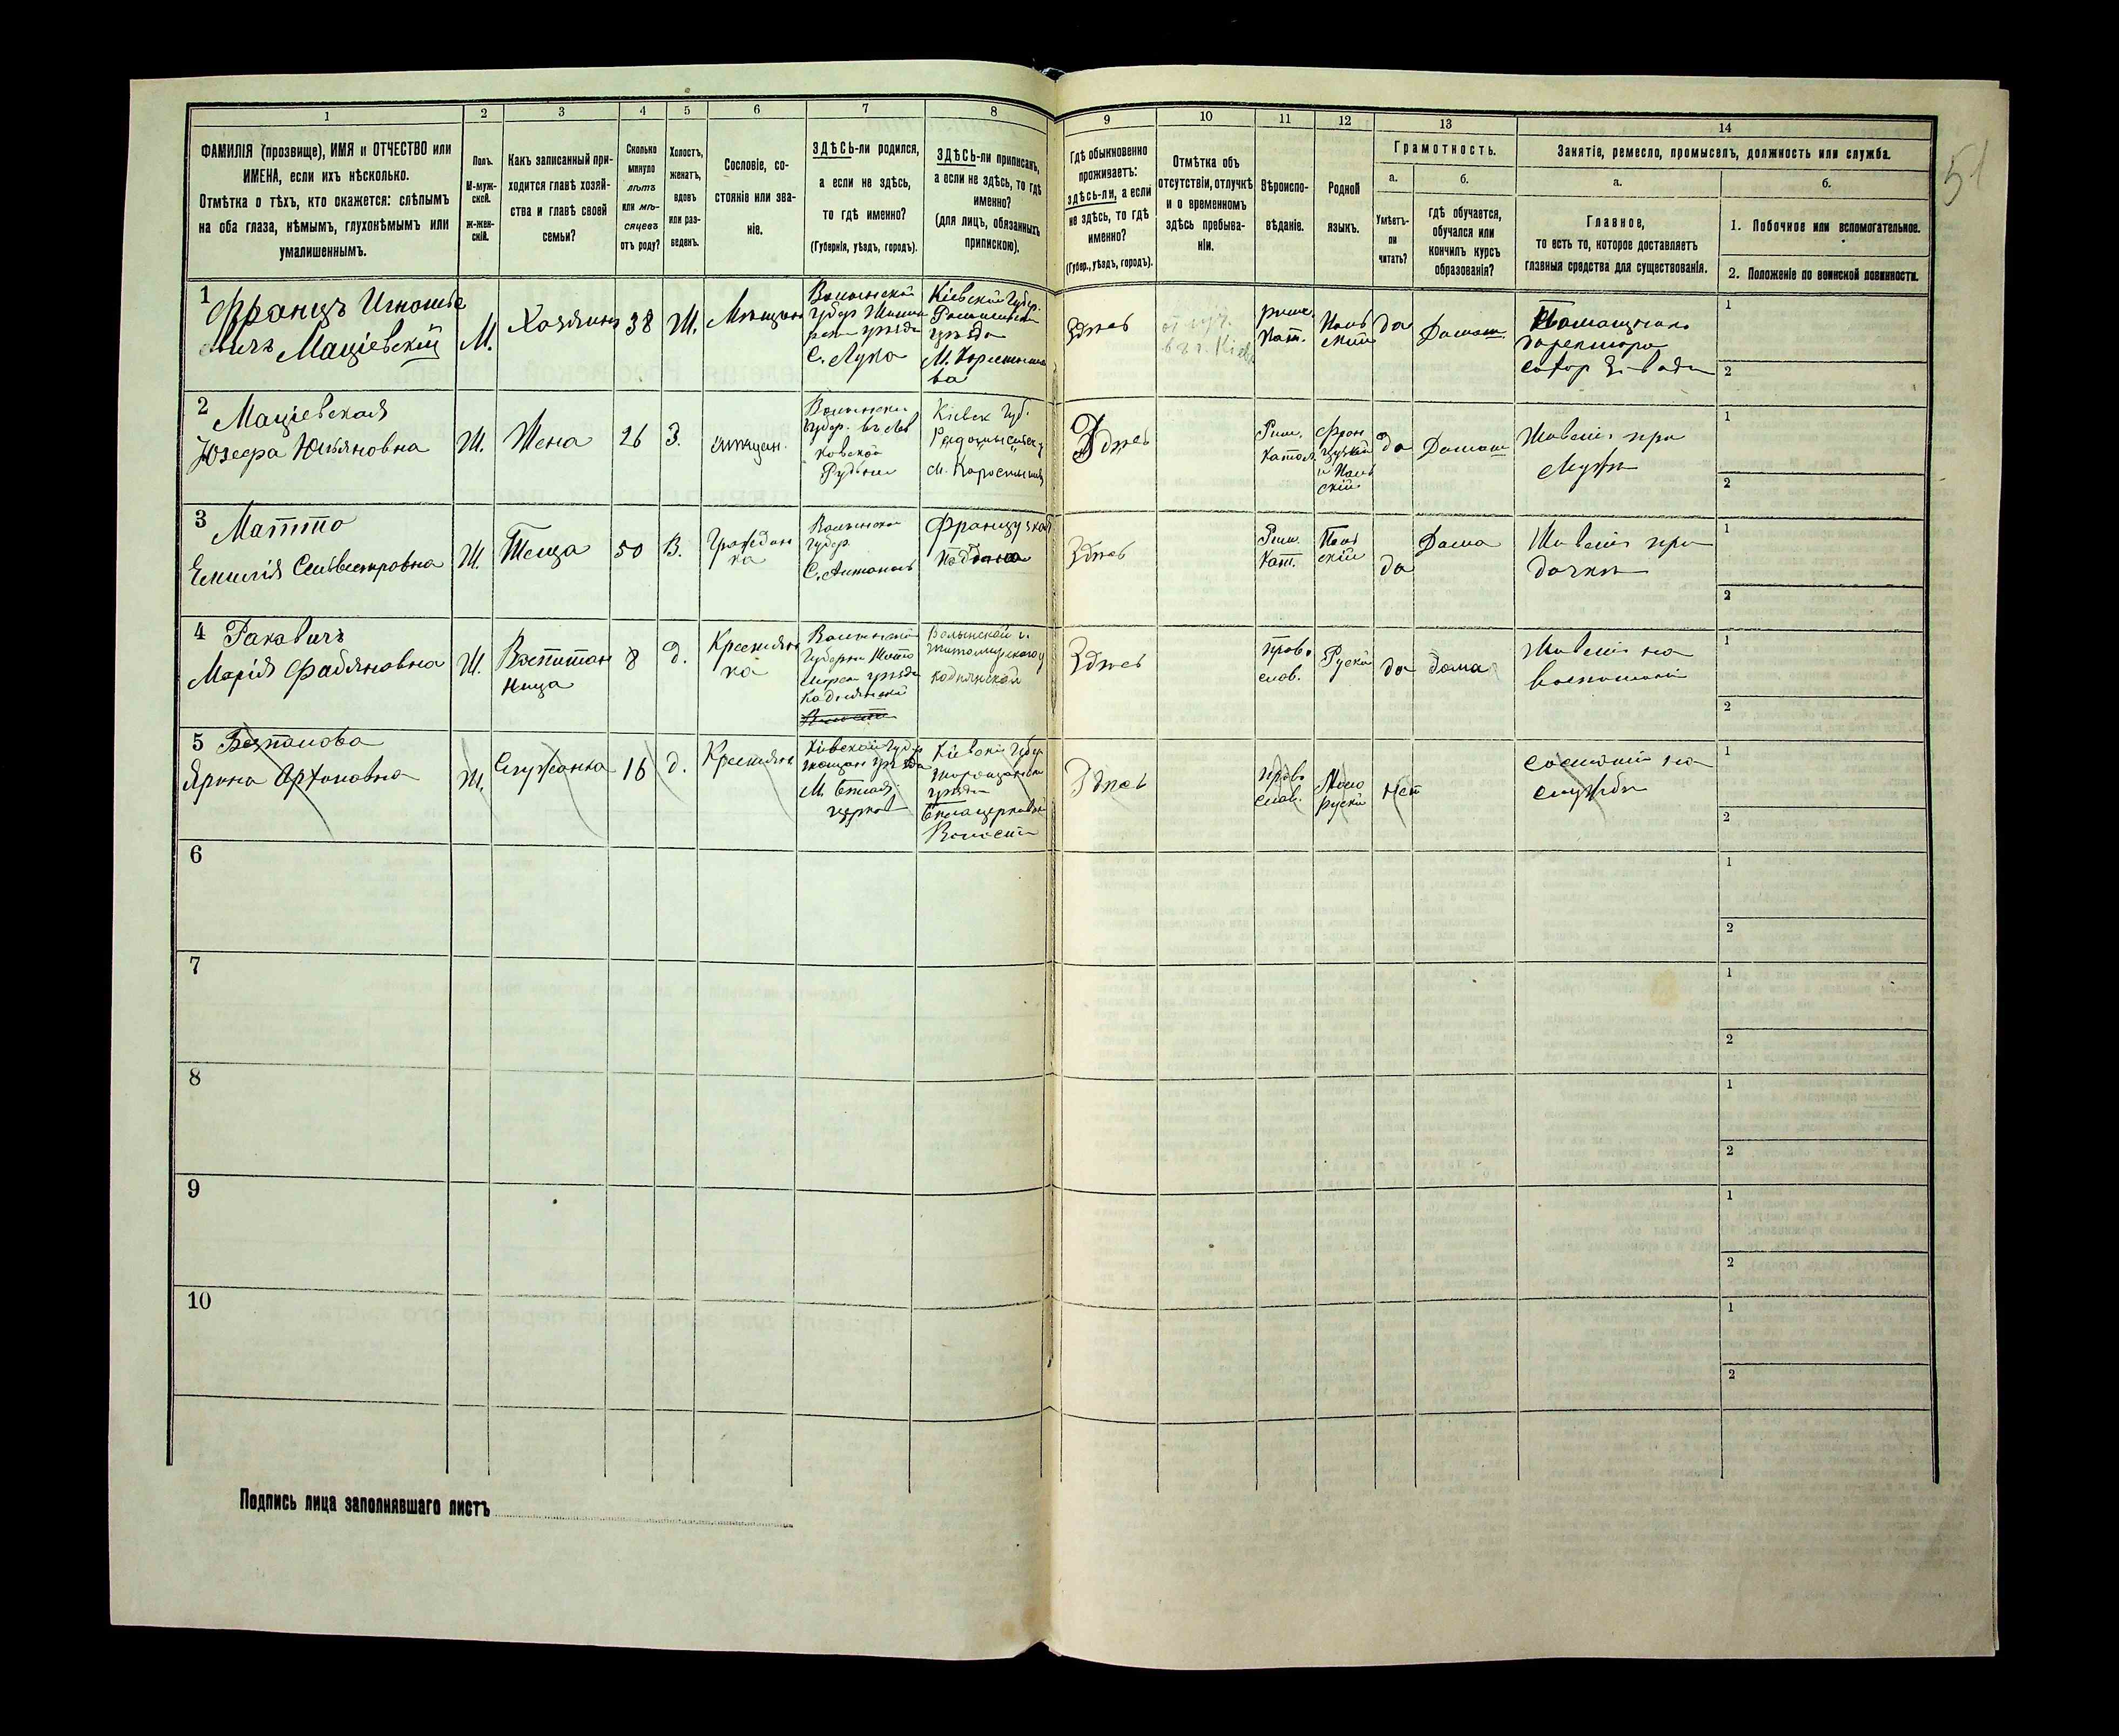 51
1
2
3
4
5
6
7
8
9
10
11
12
13
14
ФАМИЛІЯ (прозвище), ИМЯ и ОТЧЕСТВО или
ИМЕНА, если ихъ нѣсколько.
Отмѣтка о тѣхъ, кто окажется: слѣпымъ
на оба глаза, нѣмымъ, глухонѣмымъ или
умалишеннымъ.
Полъ.
М-муж-
ской.
Ж-жен-
скій.
Какъ записанный при-
ходится главѣ хозяй-
ства и главѣ своей
семьи?
Сколько
минуло
лѣтъ
или мѣ-
сяцевъ
отъ роду?
Холостъ,
женатъ,
вдовъ
или раз-
веденъ.
Сословіе, со-
стояніе или зва-
ніе.
ЗДѢСЬ-ли родился,
а если не здѣсь,
то гдѣ именно?
(Губернія, уѣздъ, городъ).
ЗДѢСЬ-ли приписанъ,
а если не здѣсь, то гдѣ
именно?
(для лицъ, обязанныхъ
припискою).
Гдѣ обыкновенно
проживаетъ:
здѣсь-ли, а если
не здѣсь, то гдѣ
именно?
(Губер., уѣздъ, городъ).
Отмѣтка объ
отсутствіи, отлучкѣ
и о временномъ
здѣсь пребыва-
ніи.
Вѣроиспо-
вѣданіе.
Родной
языкъ.
Грамотность.
а.
Умѣетъ-
ли
читать?
б.
гдѣ обучается,
обучался или
кончилъ курсъ
образованія?
Занятіе, ремесло, промыселъ, должность или служба.
а.
Главное,
то есть то, которое доставляетъ
главныя средства для существованія.
б.
1. Побочное или вспомогательное.
2. Положеніе по воинской повинности.
1
Францъ Игнатье
вичъ Маціевскій
М.
Хозяинъ
38
Ж.
Мѣщан
Волынской
губер.
уѣзда
С. Лука
Кіевской Губер.
уѣзда
М.
ва
Здѣсь
в г. Кіевъ
римс.
Кат.
Поль
скій
да
Домаш.
директора
1
2
2 Маціевская
Юзефа Юльяновна
Ж.
Жена
26
З.
мѣщан.
губер.
Рудни
Кіевск Губ.
м.
Здѣсь
Рим.
Катол.
Фран
цузкій
и Поль
скій
да
Домаш
Живетъ при
Мужѣ
1
2
3 Матто
Емилія Сельвестровна
Ж.
Теща
50
В.
Граждан
ка
Волынска
губер.
Французкая
Здѣсь
Рим.
Кат.
Поль
скій
да
Дома
Живетъ при
дочкѣ
1
2
4 Ракавичъ
Марія Фабяновна
Ж.
Воспитан
ница
8
д.
Крестьян
ка
Губерни Жито
уѣзда
Волынской г.
Житомирского у
Здѣсь
право
слав.
Руски
да
дома
Живетъ на
1
2
5
Ярина Артоновна
Ж.
Служанка
16
д.
Крестьян
Кіевской Губер
уѣзда
М. Белая
церков
Кіевской Губер
уѣзда
Белацерковской
Волости
Здѣсь
право
слав.
Мало
руски
нет
состоит на
службѣ
1
2
6
1
2
7
1
2
8
1
2
9
1
2
10
1
2
Подпись лица заполнявшаго листъ